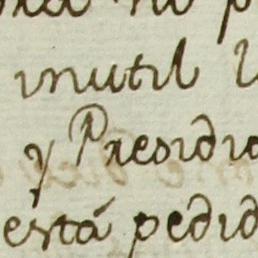 inutil
y Presidi
está pedid